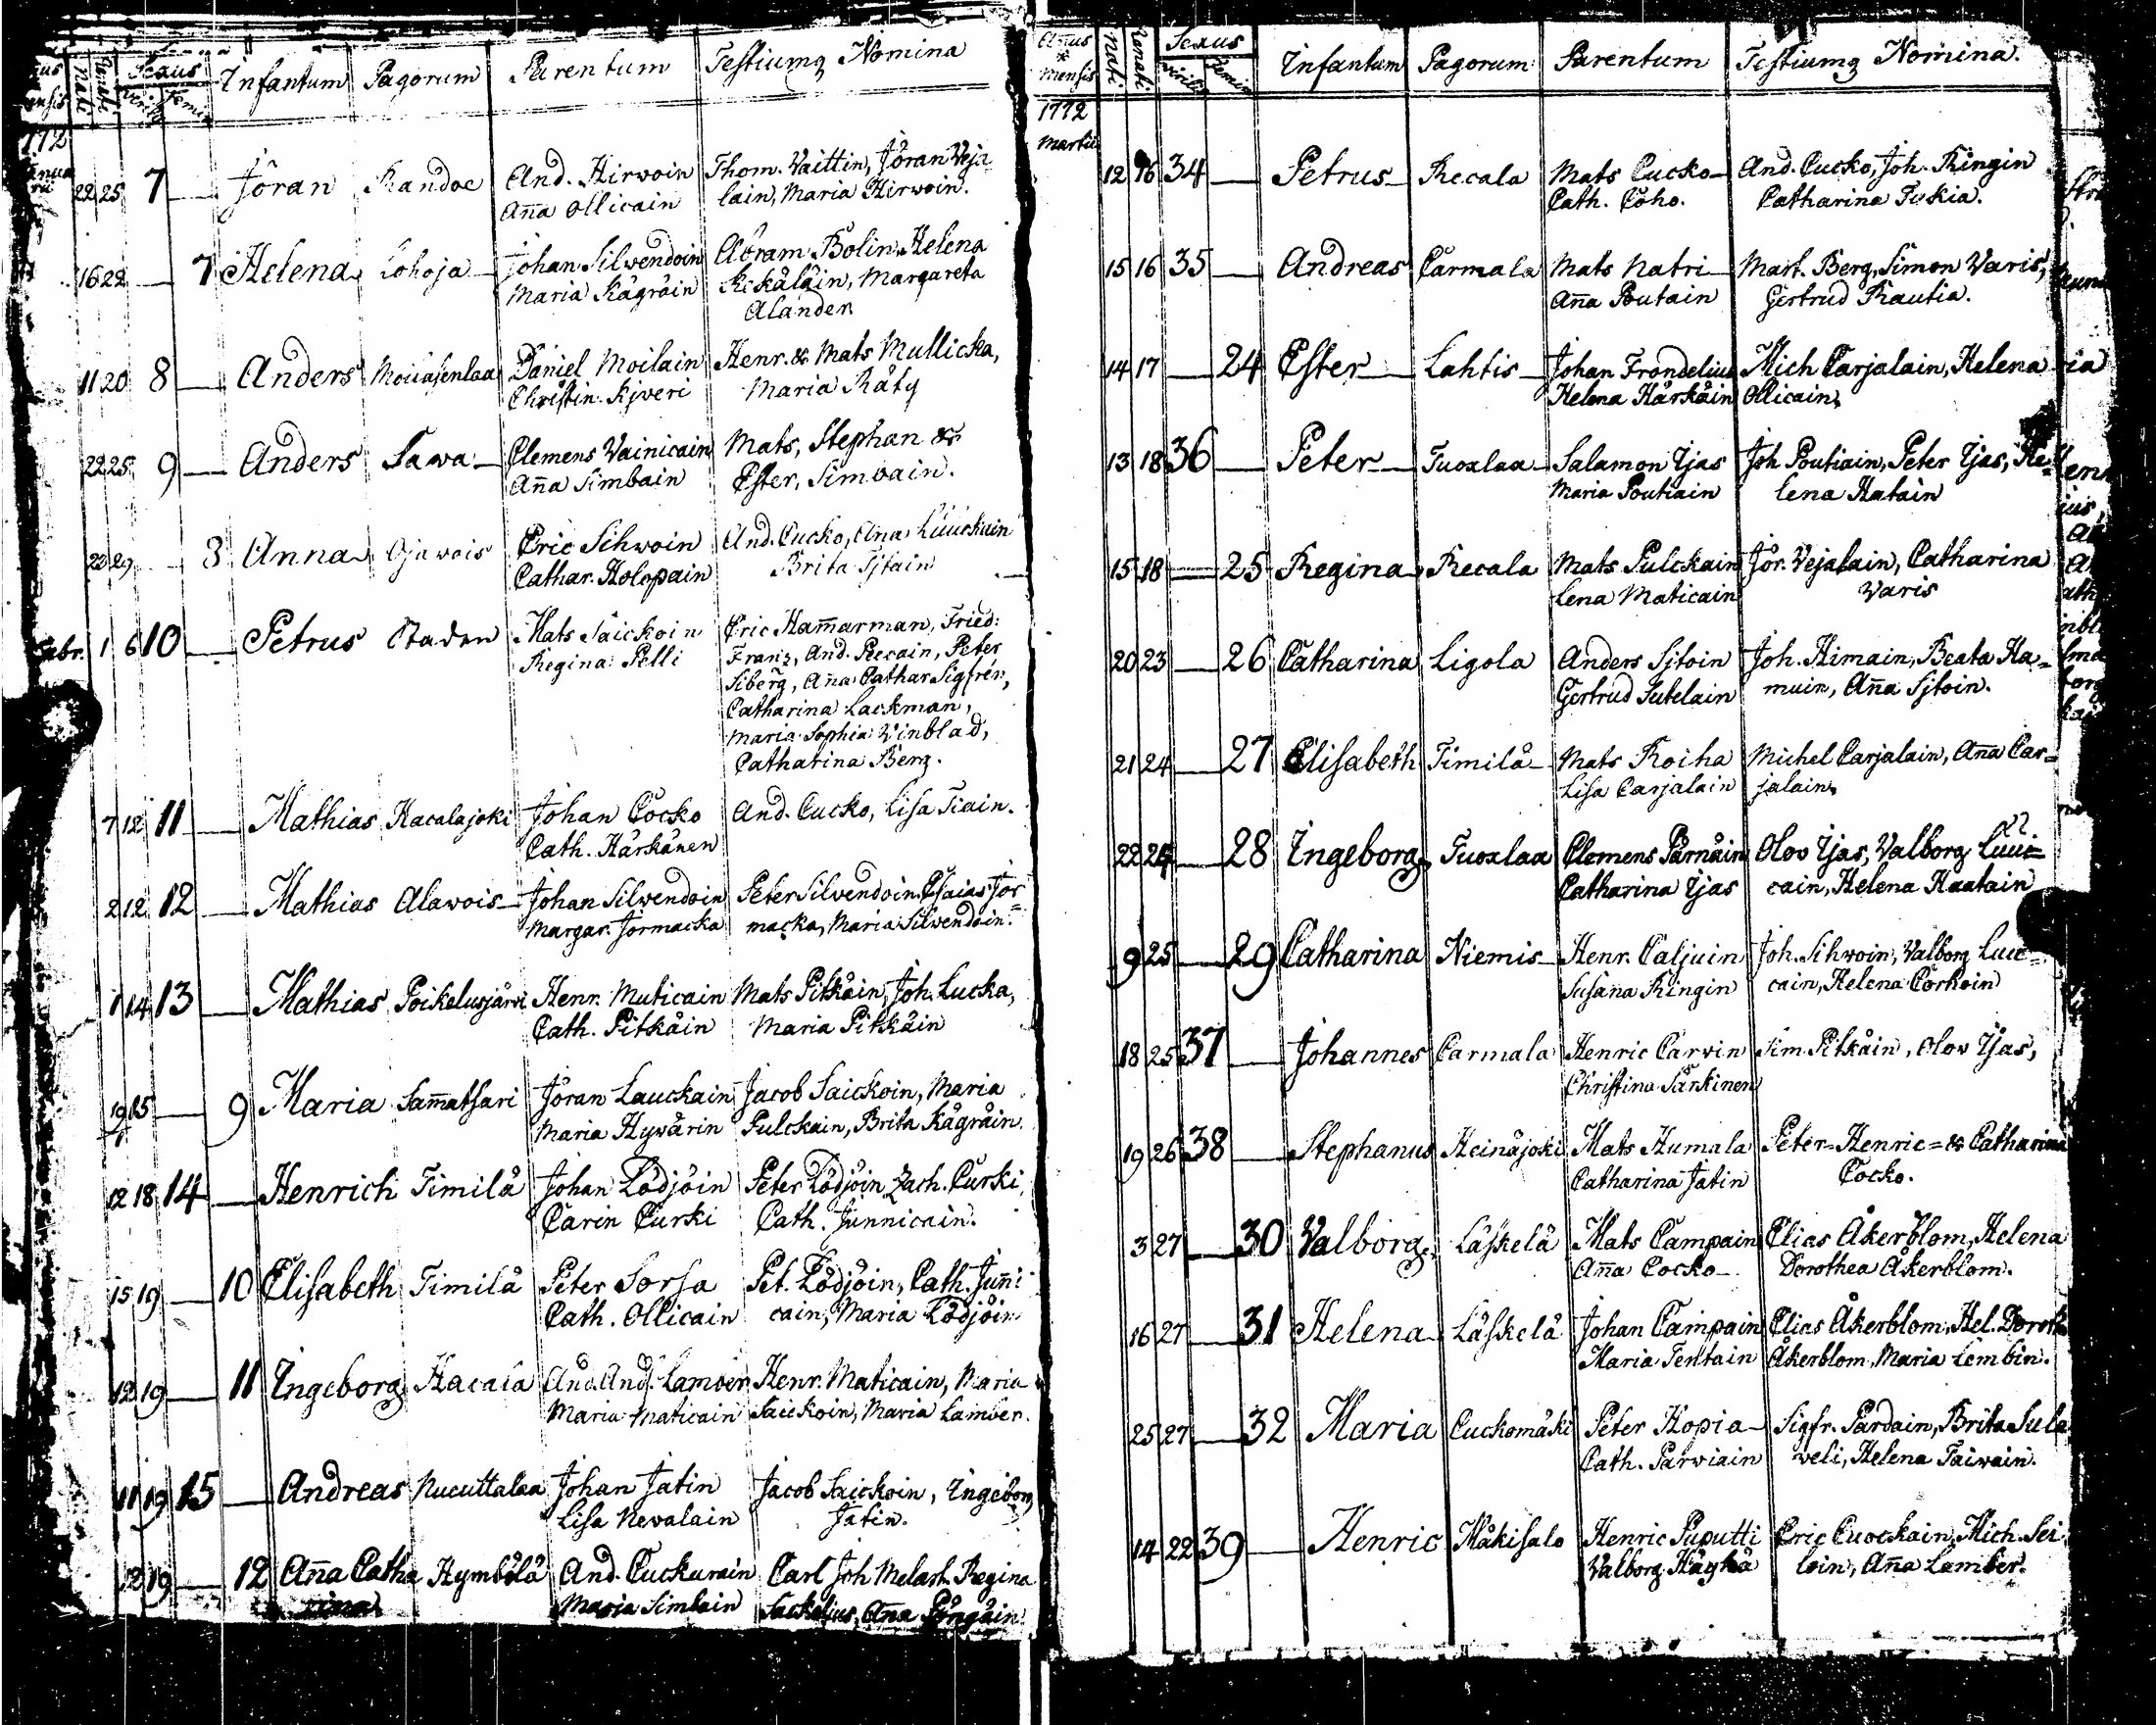 Sexus
Nati Renati Virilis Femin Infantum Pagorum Parentum Testiumq Nomina
1772
22 25 7 — Jöran Randoe And. Hirwoin Thom. Vaittin, Jöran Veja
Aña Ollicain lain, Maria Hirwoin.
16 22 — 7 Helena Lohoja Johan Silwendoin Abram Bolin, Helena
Maria Kägräin Rekäläin, Margareta
Alander
11 20 8 — Anders Daniel Moilain Henr. & Mats Mullicka,
Christin Kjweri Maria Räty
22 25 9 — Anders Sawa Clemens Vainicain Mats, Stephan &
Aña Simbain Ester, Simbain.
— 8 Anna Ojawois Eric Sihwoin And. Cucko, Aña Liuckain
Cathar. Holopain Brita Sjtain
Febr. 1 6 10 — Petrus Staden Mats Saickoin Eric Ham̃arman, Fried:
Regina Pelli Franz, And. Recain, Peter
Siberg, Aña Cathar Sigfrén,
Catharina Lackman,
Maria Sophia Vinblad,
Catharina Berg.
7 12 11 — Mathias Hacalajoki Johan Cocko And. Cucko, Lisa Tiain.
Cath. Härkänen
2 12 12 — Mathias Alawois Johan Silwendoin Peter Silvendoin, Esaias Jor=
Margar. Jormacka macka, Maria Silwendoin.
1 14 13 — Mathias Poikelusjärwi Henr. Muticain Mats Pitkäin, Joh. Lucka,
Cath. Pitkäin Maria Pitkäin
15 — 9 Maria Sam̃atsari Jöran Lauckain Jacob Saickoin, Maria
Maria Hywärin Pulckain, Brita Kägräin.
12 18 14 — Henrich Timilä Johan Lödjöin Peter Lödjöin, Zach. Curki,
Carin Curki Cath. Junnicain.
15 19 — 10 Elisabeth Timilä Peter Sorsa Pet. Lödjöin, Cath. Juñi
Cath. Ollicain cain, Maria Lödjöin
12 19 — 11 Ingeborg Hacala And. And. Lamber Henr. Maticain, Maria
Maria Maticain Saickoin, Maria Lamber.
11 19 15 — Andreas Nucuttalaa Johan Jatin Jacob Saickoin, Ingeborg
Lisa Nevalain Jatin.
12 19 — 12 Aña Catha Hymbölä And. Cuckurain Carl Joh Melart. Regina
rina Maria Simbain Sackelius, Aña Pöngäin.
Añus
&
mensis Nati Renati Sexus
Virilis Femin Infantum Pagorum Parentum Testiumq Nomina.
1772
Martii
12 16 34 — Petrus Recala Mats Cucko And. Cucko, Joh. Ringin
Cath. Coho. Catharina Tukia.
15 16 35 — Andreas Carmala Mats Natri Mart. Berg, Simon Varis,
Aña Poutain Gertrud Rautia.
14 17 — 24 Ester Lahtis Johan Frondelius Mich Carjalain, Helena
Helena Härkäin Ollicain,
13 18 36 — Peter Tuoxlax Salamon Ijas Joh Poutiain, Peter Ijas, He=
Maria Poutiain lena Hatain
15 18 — 25 Regina Recala Mats Pulckain Jör. Vejalain, Catharina
Lena Maticain Varis
20 23 — 26 Catharina Ligola Anders Sjtoin Joh. Himain, Beata Ha=
Gertrud Sutelain muin, Aña Sjtoin.
21 24 — 27 Elisabeth Timilä Mats Roiha Michel Carjalain, Aña Car=
Lisa Carjalain jalain,
22 24 — 28 Ingeborg Tuoxlax Clemens Pärnäin Olov Ijas, Valborg Luui=
Catharina Ijas cain, Helena Haatain
9 25 — 29 Catharina Niemis Henr. Caljuin Joh. Sihwoin, Valborg Luic=
Susana Ringin cain, Helena Corhoin
18 25 37 — Johannes Carmala Henric Carvin Sim. Pitkäin, Olov Ijas,
Christina Särkinen
19 26 38 — Stephanus Heinäjoki Mats Humala Peter=Henric=& Catharina
Catharina Jatin Cocko.
3 27 — 30 Valborg Läskelä Mats Campain Elias Åkerblom, Helena
Aña Cocko Dorothea Åkerblom.
16 27 — 31 Helena Läskelä Johan Campain Elias Åkerblom, Hel. Doroth
Maria Tentain Åkerblom, Maria Lembin.
25 27 — 32 Maria Cuckomäki Peter Hopia Sigfr. Pärdain, Brita Sula
Cath. Parviain weli, Helena Taiwain.
14 22 39 — Henric Mäkisalo Henric Puputti Eric Cuockain, Mich. Sei
Valborg Häyhä loin, Aña Lamber.